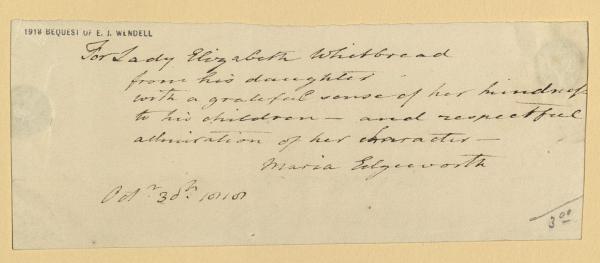 1918 BEQUEST OF E. J. WENDELL
For Lady Elizabeth Whitbread
from his daughter
with a grateful sense of her kindness
to his children — and respectful
admiration of her character —
Maria Edgeworth
Octr. 30th
300